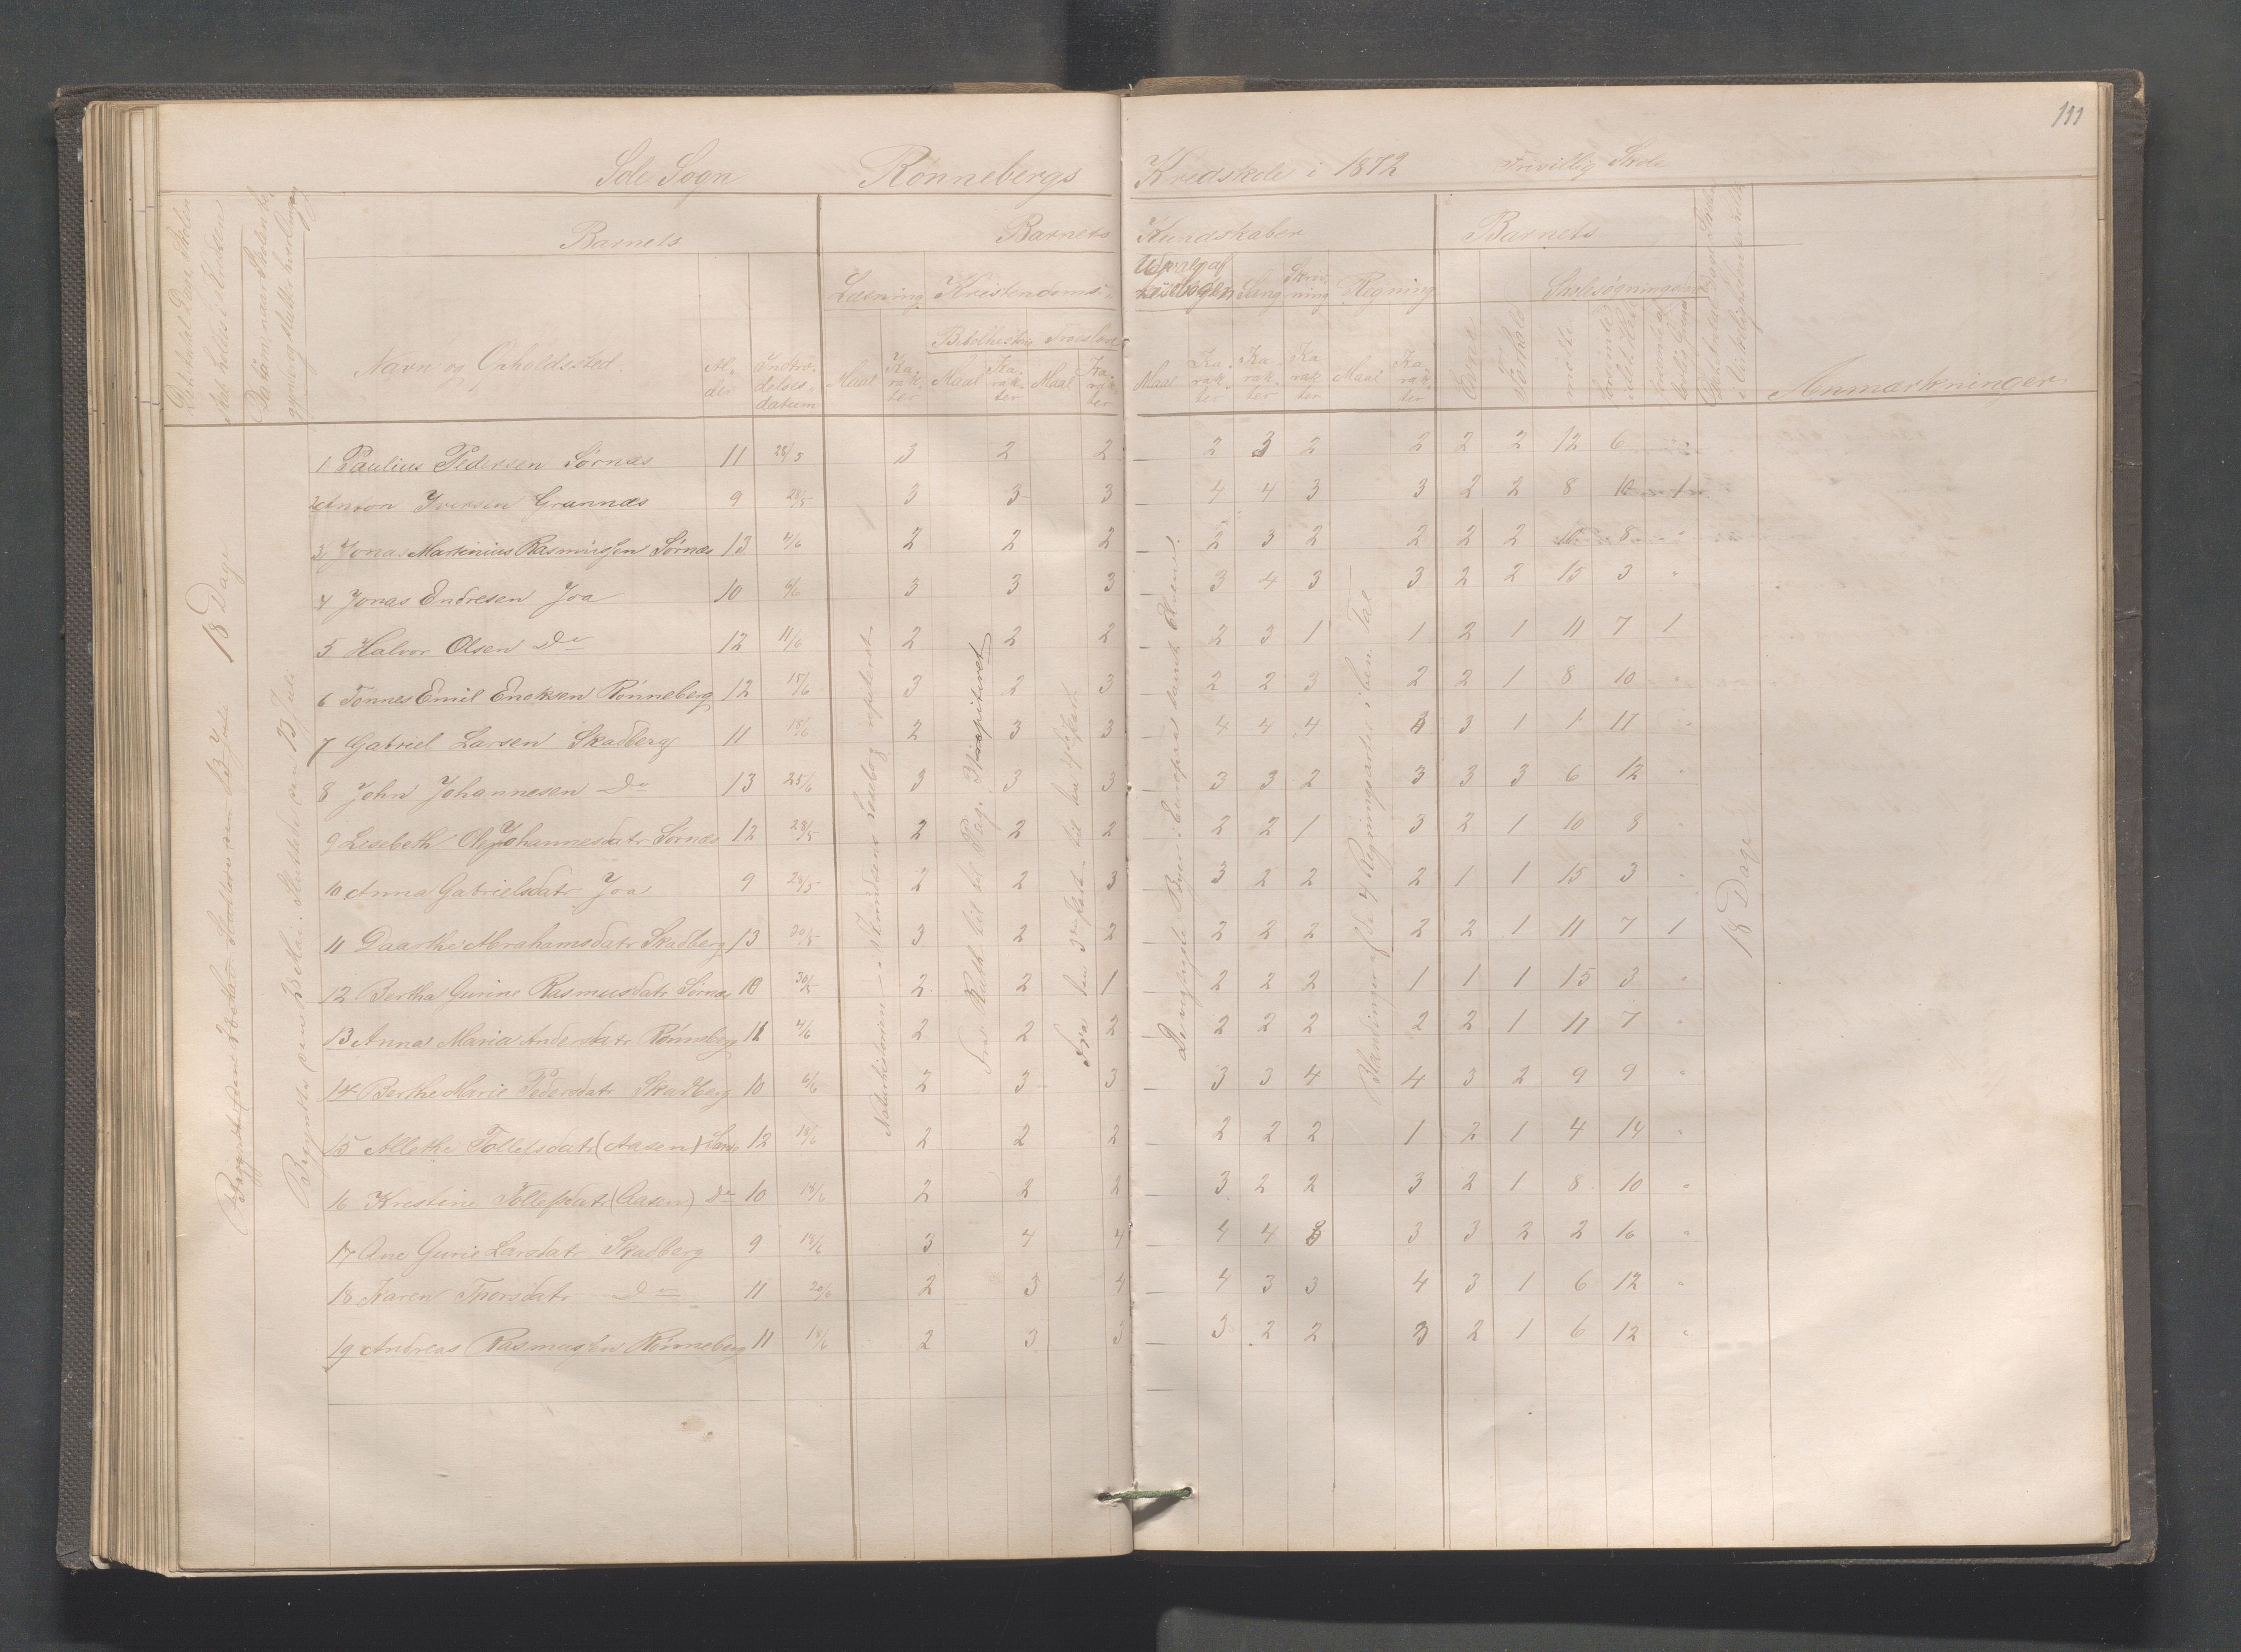 111
Sole Sogn Rønnebergs Kredskole i 1872 Frivillig Skole
Barnets Barnets Kundskaber Barnets
Læsning Kristendoms Udvalg af Læsebogen Sang Skrivning Regning Skolesøgningsdage
Bibelhistorie Troeslære
Navn og Opholdssted. Alder Indtrædelsesdatum Maal Karakter Maal Karakter Maal Karakter Maal Karakter Karakter Karakter Maal Karakter Evne Forhold mødte Anmærkninger
1 Paulius Pedersen Sørnæs 11 28/5 3 2 2 2 3 2 2 2 2 12 6 "
2 Anton Iversen Grannæs 9 28/5 3 3 3 4 4 3 3 2 2 8 10 1
3 Jonas Martinius Rasmussen Sørnæs 13 4/6 2 2 2 2 3 2 2 2 2 10 8 "
4 Jonas Endresen Joa 10 6/6 3 3 3 3 4 3 3 2 2 15 3 "
5 Halvor Olsen Do 12 11/6 2 2 2 2 3 1 1 2 1 11 7 1
6 Tønnes Emil Enoksen Rønneberg 12 15/6 3 2 3 2 2 3 2 2 1 8 10 "
7 Gabriel Larsen Skadberg 11 18/6 2 3 3 4 4 4 3 3 1 1 11 "
8 John Johannesen Do 13 25/6 3 3 3 3 3 2 3 3 3 6 12 "
9 Lisebeth Ole Johannesdatr Sørnæs 12 28/5 2 2 2 2 2 1 3 2 1 10 8 "
10 Anna Gabrielsdatr Joa 9 28/5 2 2 3 3 2 2 2 1 1 15 3 "
11 Daarthe Abrahamsdatr Skadberg 13 30/5 3 2 2 2 2 2 2 2 1 11 7 1
12 Bertha Gurine Rasmusdatr Sørnæs 10 30/5 2 2 1 2 2 2 1 1 1 15 3 "
13 Anna Maria Andersdatr Rønneberg 11 4/6 2 2 2 2 2 2 2 2 1 11 7 "
14 Berthe Marie Pedersdatr Skadberg 10 6/6 2 3 3 3 3 4 4 3 2 9 9 "
15 Allethe Tollefsdatr (Aasen) 12 18/6 2 2 2 2 2 2 1 2 1 4 14 "
16 Kristine Tollefsdatr (Aasen) Do 10 18/6 2 2 2 3 2 2 3 2 1 8 10 "
17 Ane Gurie Larsdatr Skadberg 9 18/6 3 4 4 4 4 3 3 3 2 2 16 "
18 Karen Thorsdatr Do 11 20/6 2 3 4 4 3 3 4 3 1 6 12 "
19 Andreas Rasmussen Rønneberg 11 18/6 2 3 3 3 2 2 3 2 1 6 12 "
18 Dage
Begyndte den 28 Mai. Sluttede den 13 Juli
Naturhistorien i Jensens Læsebog repeteret
Fra Ruth til Pag. 31 repeteret
Fra den 3die Part til den 4de Part
De vigtigste Byer i Europas samt Elvene.
Blandinger af de 4 Regningsarter i ben. Tal
18 Dage